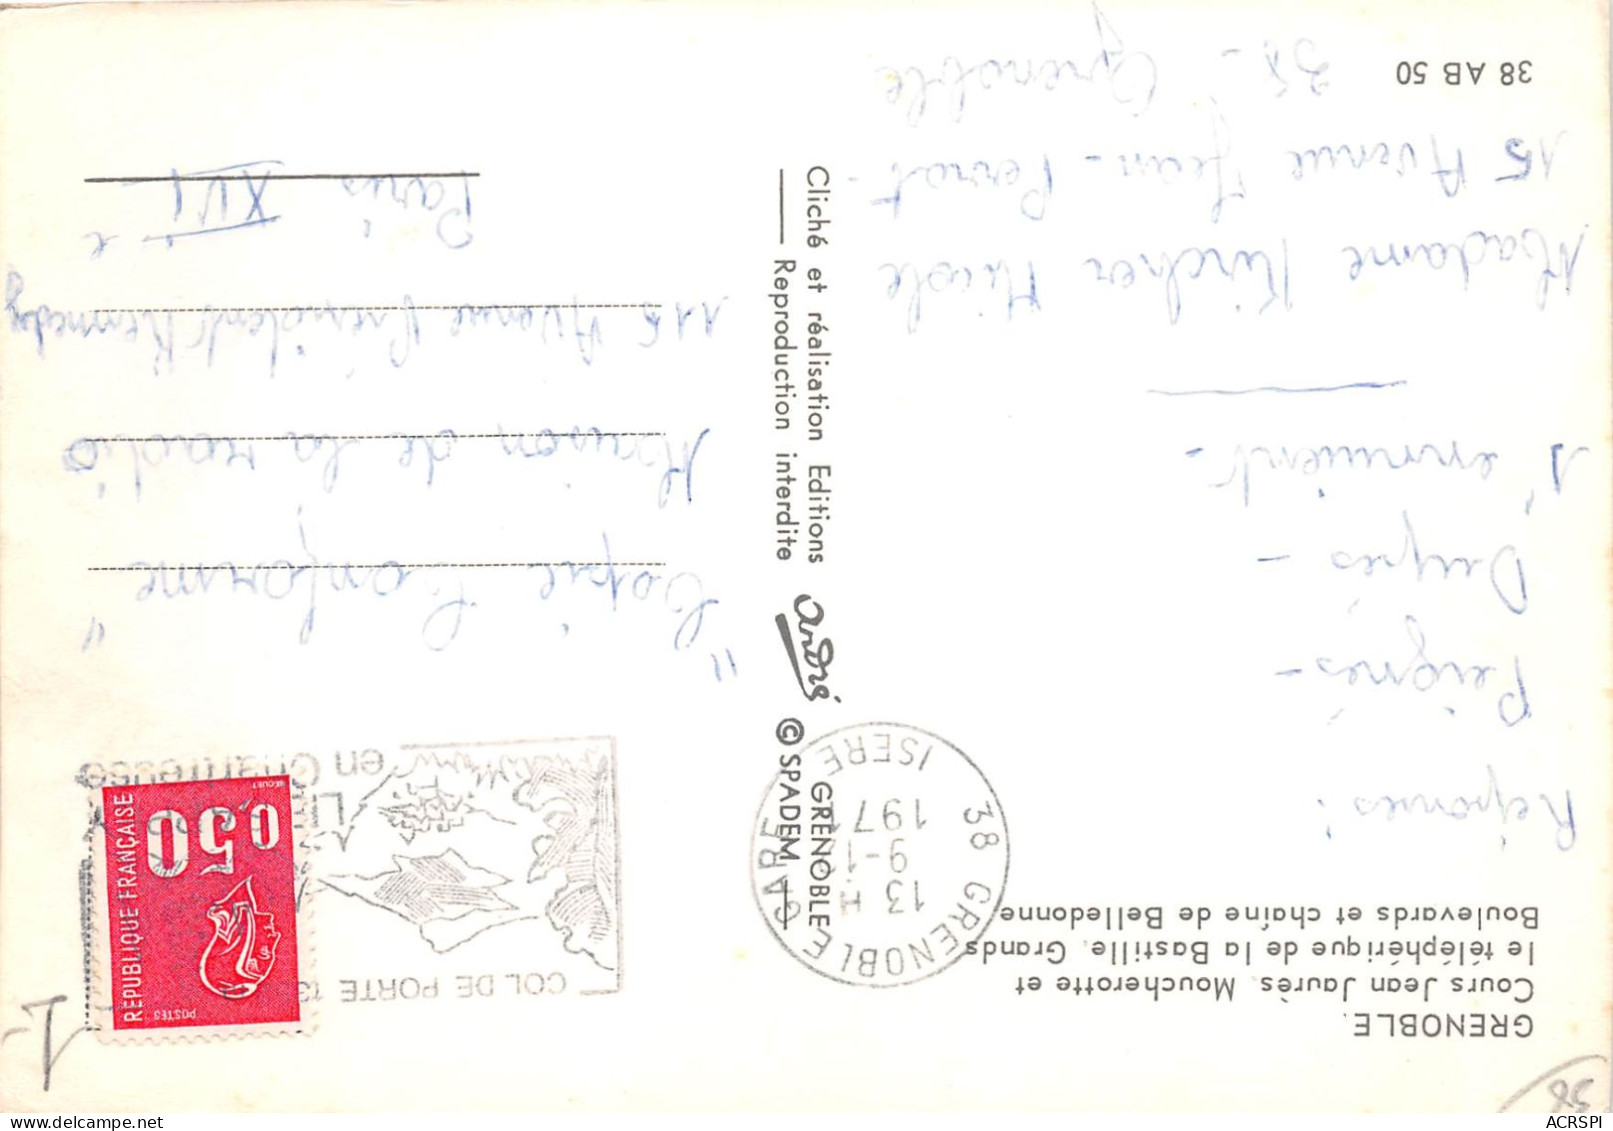 GRENOBLE.
Cours Jean Jaurès. Moucherotte et
le téléphérique de la Bastille. Grands
Boulevards et chaîne de Belledonne
Réponses :
Peignés -
Dupés -
S'ennuient -
Madame Kircher Nicole
15 Avenue Jean-Perrot -
38 - Grenoble
38 AB 50
Cliché et réalisation Editions André GRENOBLE
Reproduction interdite © SPADEM
38 GRENOBLE GARE
13 H
9-1
197
ISERE
COL DE PORTE 13
en Chartreuse
POSTES
REPUBLIQUE FRANÇAISE
0,50
BEQUET
"Copie Conforme"
Maison de la radio
115 Avenue Président Kennedy
Paris XVI e
38
ACRSPI